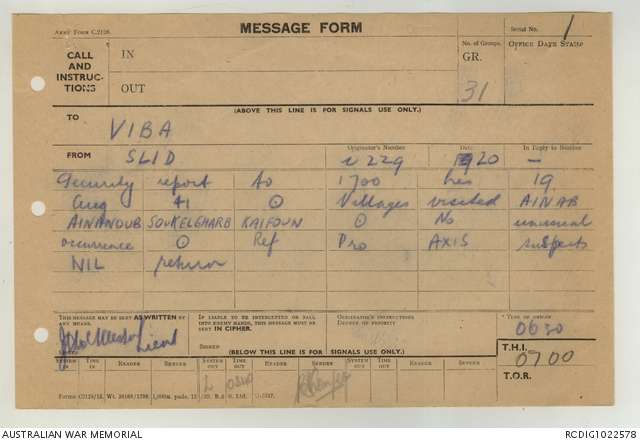 ARMY FORM C.2128.
MESSAGE FORM
Serial No. 1
CALL AND INSTRUCTIONS
IN
OUT
No. of Groups.
GR. 31
OFFICE DATE STAMP
(ABOVE THIS LINE IS FOR SIGNALS USE ONLY.)
TO VIBA
FROM SLID
Originator's Number
Date
In Reply to Number
20 —
Security report to 1700 hrs 19
Aug 41 O Villages visited AINAB
AINANOUB SOUKELGHARB KAIFOUN O No unusual
occurrence O Ref Pro AXIS suspects
NIL return
THIS MESSAGE MAY BE SENT AS WRITTEN BY ANY MEANS.
IF LIABLE TO BE INTERCEPTED OR FALL INTO ENEMY HANDS, THIS MESSAGE MUST BE SENT IN CIPHER.
ORIGINATOR'S INSTRUCTIONS
DEGREE OF PRIORITY
TIME OF ORIGIN
Lieut
SIGNED
(BELOW THIS LINE IS FOR SIGNALS USE ONLY.)
T.H.I. 0700
SYSTEM IN
TIME IN
READER
SENDER
SYSTEM OUT
TIME OUT
READER
SENDER
SYSTEM OUT
TIME OUT
READER
SENDER
T.O.R.
AUSTRALIAN WAR MEMORIAL
RCDIG1022578